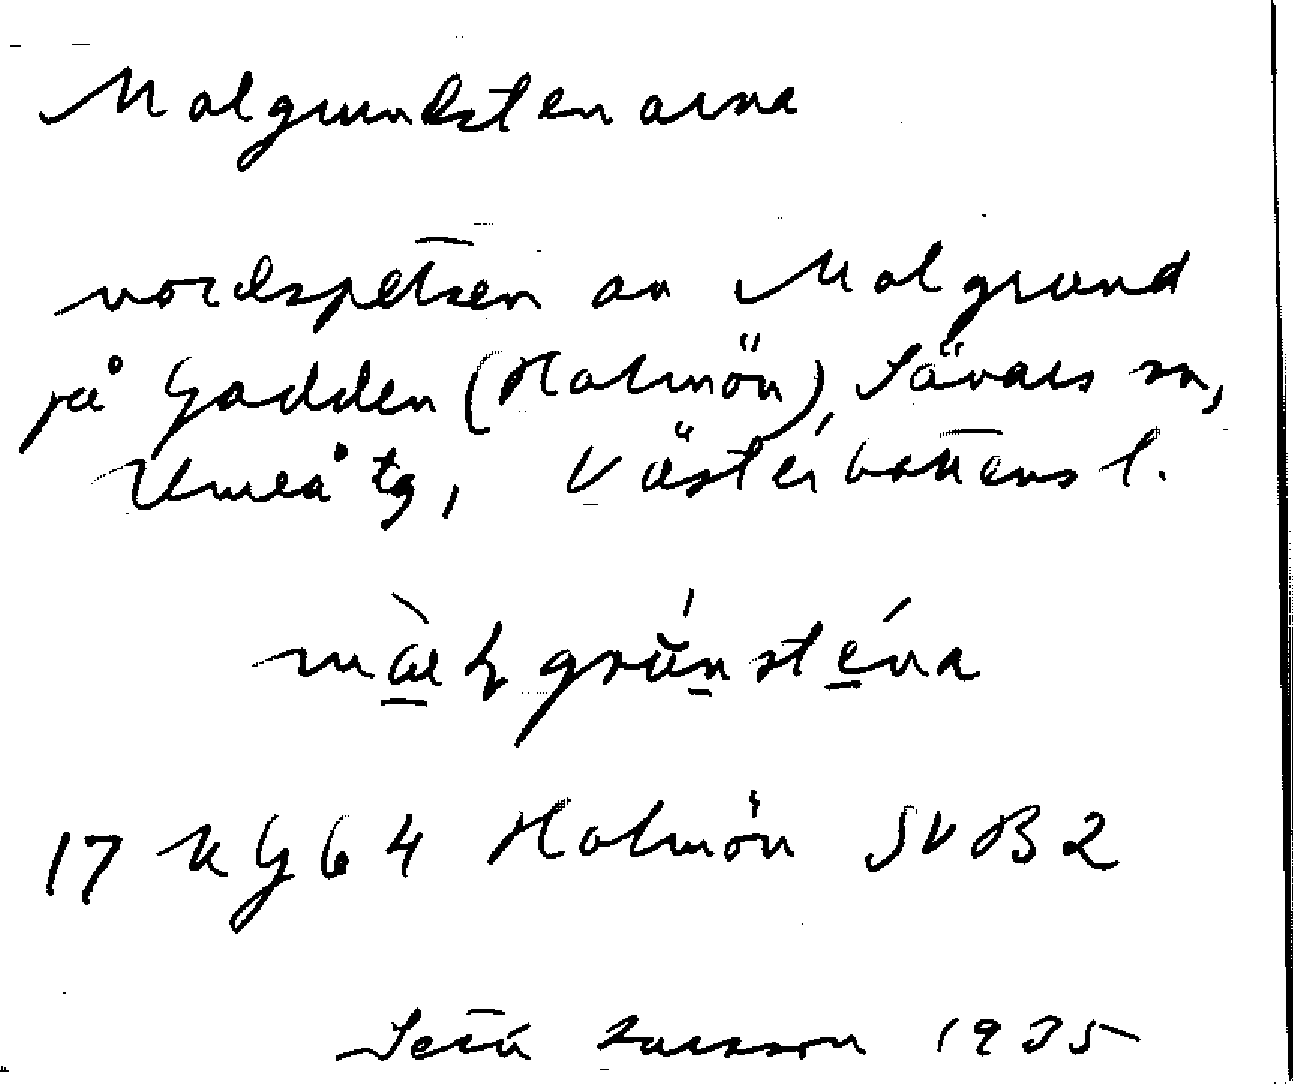 Malgrundstenarna
nordspetsen av Malgrund
på Gadden (Holmön), Sävars sn,
Umeå tg, Västerbottens l.
17 K G 6 4 Holmön SV B 2
Larsson 1935